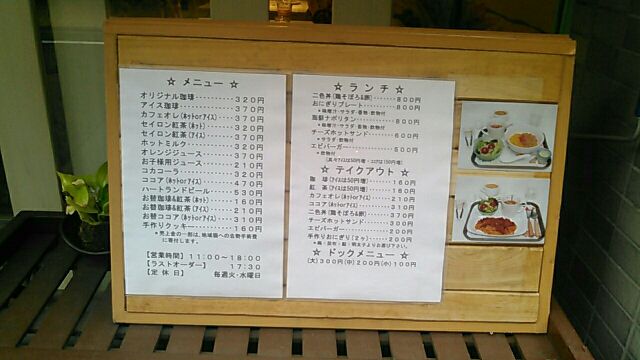 ☆ メニュー ☆
オリジナル珈琲・・・・・・・320円
アイス珈琲・・・・・・・・・370円
カフェオレ(ホットorアイス)・・・370円
セイロン紅茶(ホット)・・・・・320円
セイロン紅茶(アイス)・・・・・370円
ホットミルク・・・・・・・・320円
オレンジジュース・・・・・・370円
お子様用ジュース・・・・・・210円
コカコーラ・・・・・・・・・320円
ココア(ホットorアイス)・・・・・470円
ハートランドビール・・・・・530円
お替珈琲&紅茶(ホット)・・・・160円
お替珈琲&紅茶(アイス)・・・・210円
お替ココア(ホットorアイス)・・・210円
手作りクッキー・・・・・・・160円
*売上金の一部は、地域猫への去勢手術費に寄付します。
【営業時間】 11:00～18:00
【ラストオーダー】 17:30
【定 休 日】 毎週火・水曜日
☆ ランチ ☆
二色丼(鶏そぼろ&卵)・・・・・800円
おにぎりプレート・・・・・・800円
*味噌汁・サラダ・香物・飲物付
*サラダ・飲物付
チーズホットサンド・・・・・600円
エビバーガー・・・・・・・・500円
*飲物付
☆ テイクアウト ☆
珈 琲(アイスは50円増)・・・・160円
紅 茶(アイスは50円増)・・・・160円
カフェオレ(ホットorアイス)・・・210円
ココア(ホットorアイス)・・・・・310円
二色丼(鶏そぼろ&卵)・・・・・370円
チーズホットサンド・・・・・300円
エビバーガー・・・・・・・・200円
手作りおにぎり(2ヶ)・・・・200円
☆ ドックメニュー ☆
(大)300円(中)200円(小)100円